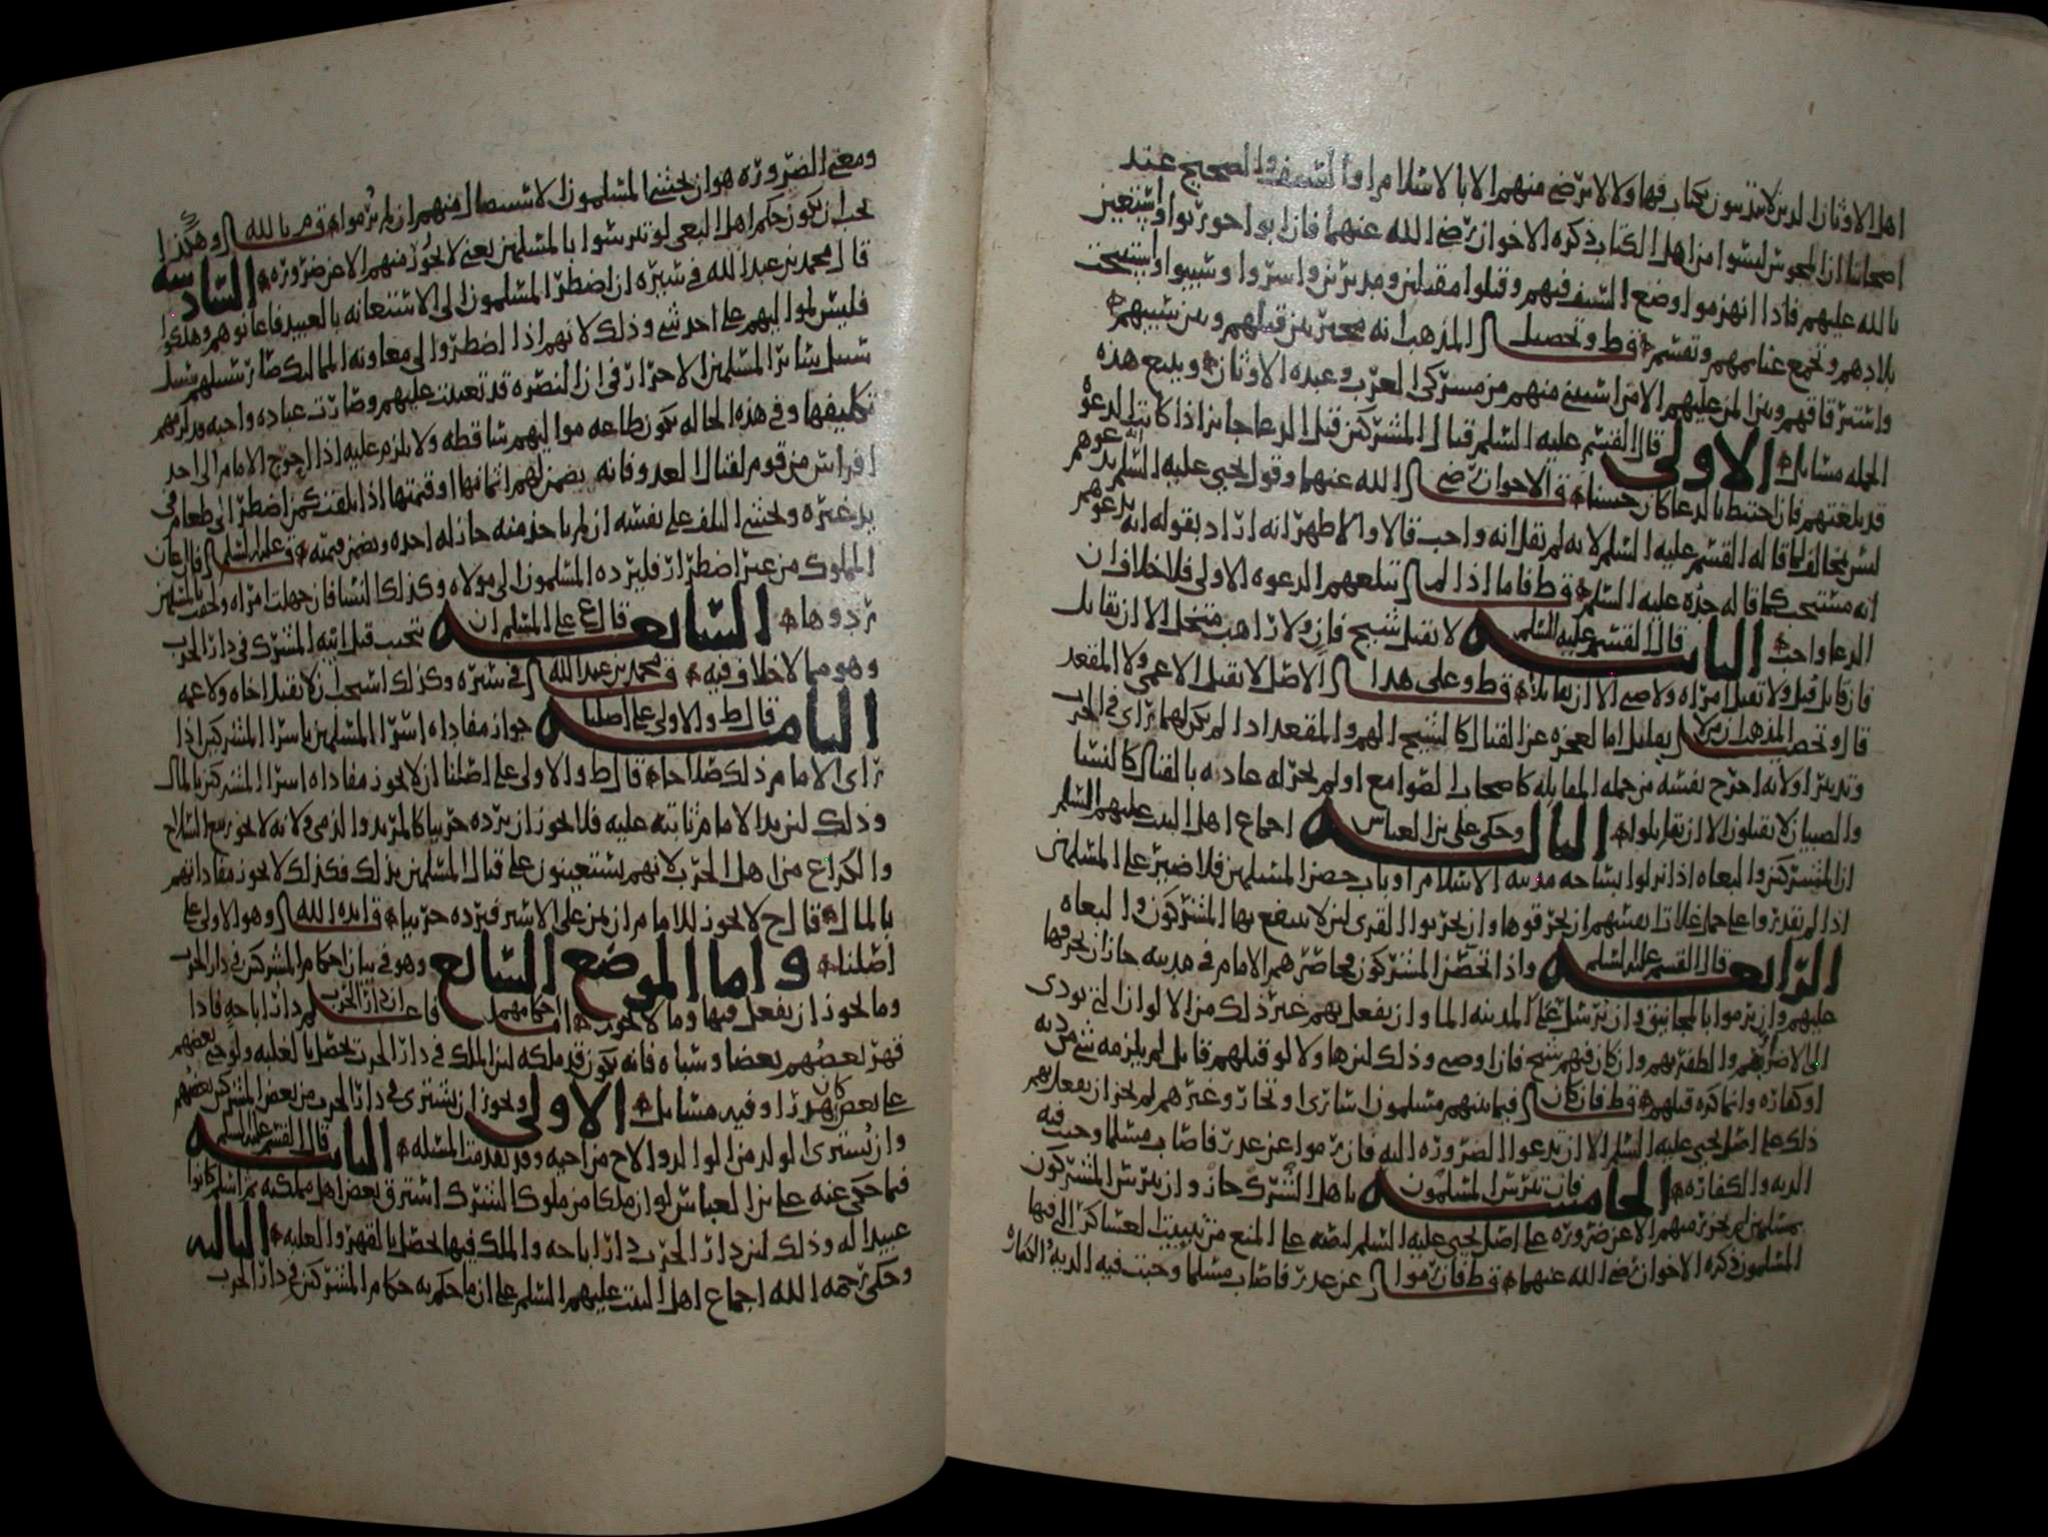 اهل الاوثان الذين لا يدينون بكتاب فهاولا لا يرضى منهم الا بالاسلام او السيف والصحيح عند
اصحابنا ان المجوس ليسوا من اهل الكتاب ذكره الاخوان رضي الله عنهما فان ابوا حوربوا واستعين
بالله عليهم فاذا انهزموا وضع السيف فيهم وقتلوا مقبلين ومدبرين واسروا وسبيوا واستبيحت
بلادهم وتجمع غنايمهم وتقسم قط وتحصيل المذهب انه مخير بين قتلهم وبين سبيهم
واسترقاقهم وبين المن عليهم الا من استثنى منهم من مشركي العرب وعبده الاوثان ويتبع هذه
الجمله مسايل الاولى قال القسم عليه السلم قتال المشركين قبل الدعا جايز اذا كانت الدعوة
قد بلغتهم فان احتيط بالدعا كان حسنا ق الاخوان رضي الله عنهما وقول يحيى عليه السلم يدعوهم
ليس مخالف لما قاله القسم عليه السلم لانه لم يقل انه واجب قالا والاظهر انه اراد بقوله انه يدعوهم
انه مستحب كما قاله جده عليه السلم قط فاما اذا لم تبلغهم الدعوه الاولى فلا خلاف ان
الدعا واجب الثانيه قال القسم عليه السلم لا يقتل شيخ فان ولا راهب متخل الا ان يقاتل
فان قاتل قتل ولا تقتل امراه ولا صبي الا ان يقاتلا قط وعلى هذا الاصل لا يقتل الاعمى ولا المقعد
قال وتحصيل المذهب ان من لا يقاتل اما لعجزه عن القتال كالشيخ الهم والمقعد اذا لم يكن لهما راي في الحرب
وتدبير او لانه اخرج نفسه من جمله المقاتله كاصحاب الصوامع او لم يجر له عاده بالقتال كالنسا
والصبيان لا يقتلون الا ان يقاتلوا الثالثه وحكى علي بن العباس اجماع اهل البيت عليهم السلم
ان المشركين والبغاه اذا نزلوا بساحه مدينه الاسلام او باب حصن المسلمين فلا ضير على المسلمين
اذا لم يقدروا على حمل غلات انفسهم ان يحرقوها وان يخربوا القرى لئن لا ينتفع بها المشركون والبغاه
الرابعه قال القسم عليه السلم واذا تحصن المشركون فحاصرهم الامام في مدينه جاز ان يحرقها
عليهم وان يرموا بالمجانيق وان يرسل على المدينه الما وان يفعل بهم غير ذلك من الالوان التي تودى
الى الاضرار بهم والظفر بهم وان كان فيهم شيخ فان او صبي وذلك لئن هاولا لو قتلهم قاتل لم يلزمه شي من ديه
او كفاره وانما كره قتلهم قط فان كان فيما بينهم مسلمون اسارى او تجار وغيرهم لم يجز ان يفعل بهم
ذلك على اصل يحيى عليه السلم الا ان تدعوا الضروره اليه فان رموا عن عذر فاصاب مسلما وجبت فيه
الديه والكفاره الخامسه فان تترس المسلمون باهل الشرك جاز وان تترس المشركون
بمسلمين لم يجز رميهم الا عن ضروره على اصل يحيى عليه السلم لنصه على المنع من تبييت العساكر التي فيها
المسلمون ذكره الاخوان رضي الله عنهما قط فان رموا عن عذر فاصاب مسلما وجبت فيه الديه والكفاره
ومعنى الضروره هو ان يخشى المسلمون الاستيصال منهم ان لم يرموا ق م بالله وهكذا
يجب ان يكون حكم اهل البغي لو تترسوا بالمسلمين يعني لا يجوز منهم الا عن ضروره السادسه
قال محمد بن عبدالله في سيره ان اضطر المسلمون الى الاستعانه بالعبيد فاعانوهم وهلكوا
فليس لمواليهم على احد شي وذلك لانهم اذا اضطروا الى معاونه المماليك صار سبيلهم سبيل
سبيل ساير المسلمين الاحرار في ان النصره قد تعينت عليهم وصارت عباده واجبه يلزمهم
تكليفها وفي هذه الحاله يكون طاعه مواليهم ساقطه ولا يلزم عليه اذا احوج الامام الى اخذ
افراس من قوم لقتال العدو فانه يضمن لهم اثمانها او قيمتها اذا تلفت كمن اضطر الى طعام في
يد غيره وخشي التلف على نفسه ان لم ياخذ منه جاز له اخذه ويضمن قيمته ق عليه السلم فان اعان
المملوك من غير اضطرار فليرده المسلمون الى مولاه وكذلك النسا فان جهلت امراه ولحقت بالمسلمين
ردوها السابعه قال ع على المسلم ان يجتنب قتل ابيه المشرك في دار الحرب
وهو مما لا خلاف فيه ق محمد بن عبدالله في سيره وكذلك استحب ان لا يقتل اخاه ولا عمه
الثامنه قال ط والاولى على اصلنا جواز مفاداه اسرا المسلمين باسرا المشركين اذا
راى الامام ذلك صلاحا قال ط والاولى على اصلنا ان لا يجوز مفاداه اسرا المشركين بالمال
وذلك لئن يد الامام ثابته عليه فلا يجوز ان يرده حربيا كالمرتد والذمي ولانه لا يجوز بيع السلاح
والكراع من اهل الحرب لانهم يستعينون على قتال المسلمين بذلك فكذلك لا يجوز مفاداتهم
بالمال قال ح لا يجوز للامام ان يمن على الاسير فيرده حربيا ق ايده الله وهو الاولى على
اصلنا واما الموضع السابع وهو في بيان احكام المشركين في دار الحرب
وما يجوز ان يفعل فيها وما لا يجوز اما احكامهم فاعلم ان دار الحرب دار اباحه فاذا
قهر بعضهم بعضا وسباه فانه يكون قد ملكه لئن الملك في دار الحرب يحصل بالغلبه ولو جنى بعضهم
على بعض كان هدرا وفيه مسايل الاولى ويجوز ان يشترى في دار الحرب من بعض المشركين بعضهم
وان يشترى الولد من الوالد والاخ من اخيه وقد تقدمت المسله الثانيه قال القسم عليه السلم
فيما حكى عنه علي بن العباس لو ان ملكا من ملوك الشرك استرق بعض اهل مملكته ثم اسلم كانوا
عبيدا له وذلك لئن دار الحرب دار اباحه والملك فيها يحصل بالقهر والغلبه الثالثه
وحكى رحمه الله اجماع اهل البيت عليهم السلم على ان ما حكم به حكام المشركين في دار الحرب